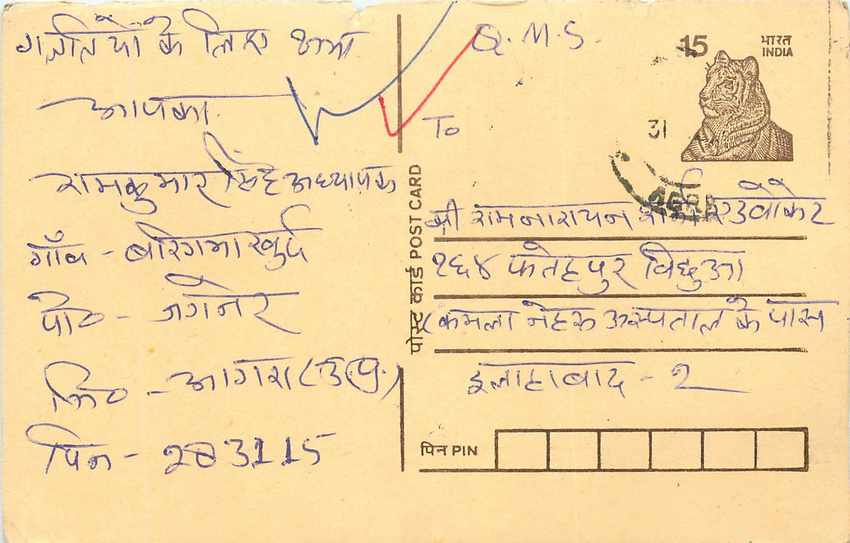 गलतियों के लिए क्षमा
आपका
रामकुमार सिंह अध्यापक
गाँव - बरिगमा खुर्द
पो० - जगनेर
जि० - आगरा (उ.प्र.)
पिन - 283115
पोस्ट कार्ड POST CARD
Q.M.S.
15
भारत
INDIA
31
To
AGRA
श्री रामनारायन शर्मा एडवोकेट
१६४ फतेहपुर विछुआ
(कमला नेहरू अस्पताल के पास
इलाहाबाद - २
पिन PIN